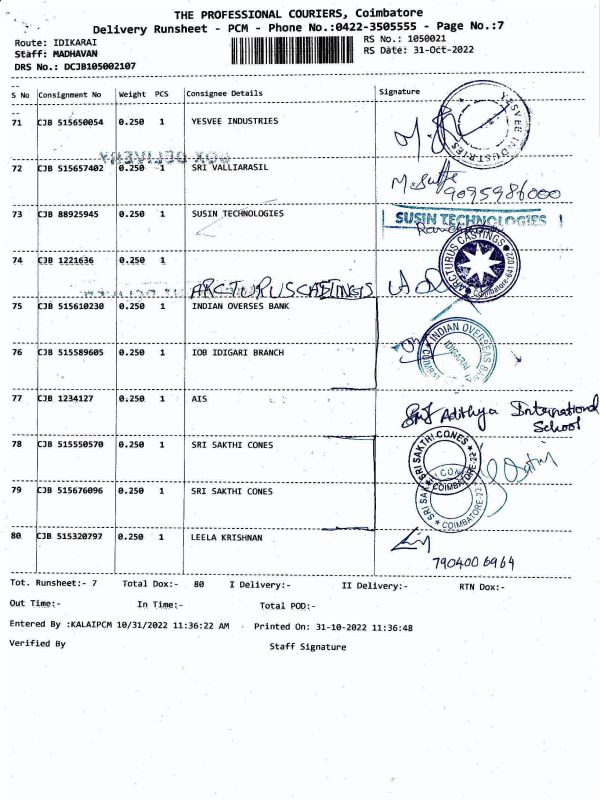 THE PROFESSIONAL COURIERS, Coimbatore
Delivery Runsheet - PCM - Phone No.:0422-3505555 - Page No.:7
Route: IDIKARAI RS No.: 1050021
Staff: MADHAVAN RS Date: 31-Oct-2022
DRS No.: DCJB105002107
S No Consignment No Weight PCS Consignee Details Signature
71 CJB 515650054 0.250 1 YESVEE INDUSTRIES
YESVEE INDUSTRIES
BOX DELIVERY
72 CJB 515657402 0.250 1 SRI VALLIARASIL
9095986000
73 CJB 88925945 0.250 1 SUSIN TECHNOLOGIES
SUSIN TECHNOLOGIES
74 CJB 1221636 0.250 1
ARCTURUS CASTINGS
ARCTURUS CASTINGS Coimbatore-641022
75 CJB 515610230 0.250 1 INDIAN OVERSES BANK
76 CJB 515589605 0.250 1 IOB IDIGARI BRANCH
INDIAN OVERSEAS BANK IDIGARAI
77 CJB 1234127 0.250 1 AIS
Adithya International
School
78 CJB 515550570 0.250 1 SRI SAKTHI CONES
SRI SAKTHI CONES COIMBATORE-22
79 CJB 515676096 0.250 1 SRI SAKTHI CONES
COIMBATORE-22
80 CJB 515320797 0.250 1 LEELA KRISHNAN
7904006964
Tot. Runsheet:- 7 Total Dox:- 80 I Delivery:- II Delivery:- RTN Dox:-
Out Time:- In Time:- Total POD:-
Entered By :KALAIPCM 10/31/2022 11:36:22 AM Printed On: 31-10-2022 11:36:48
Verified By Staff Signature